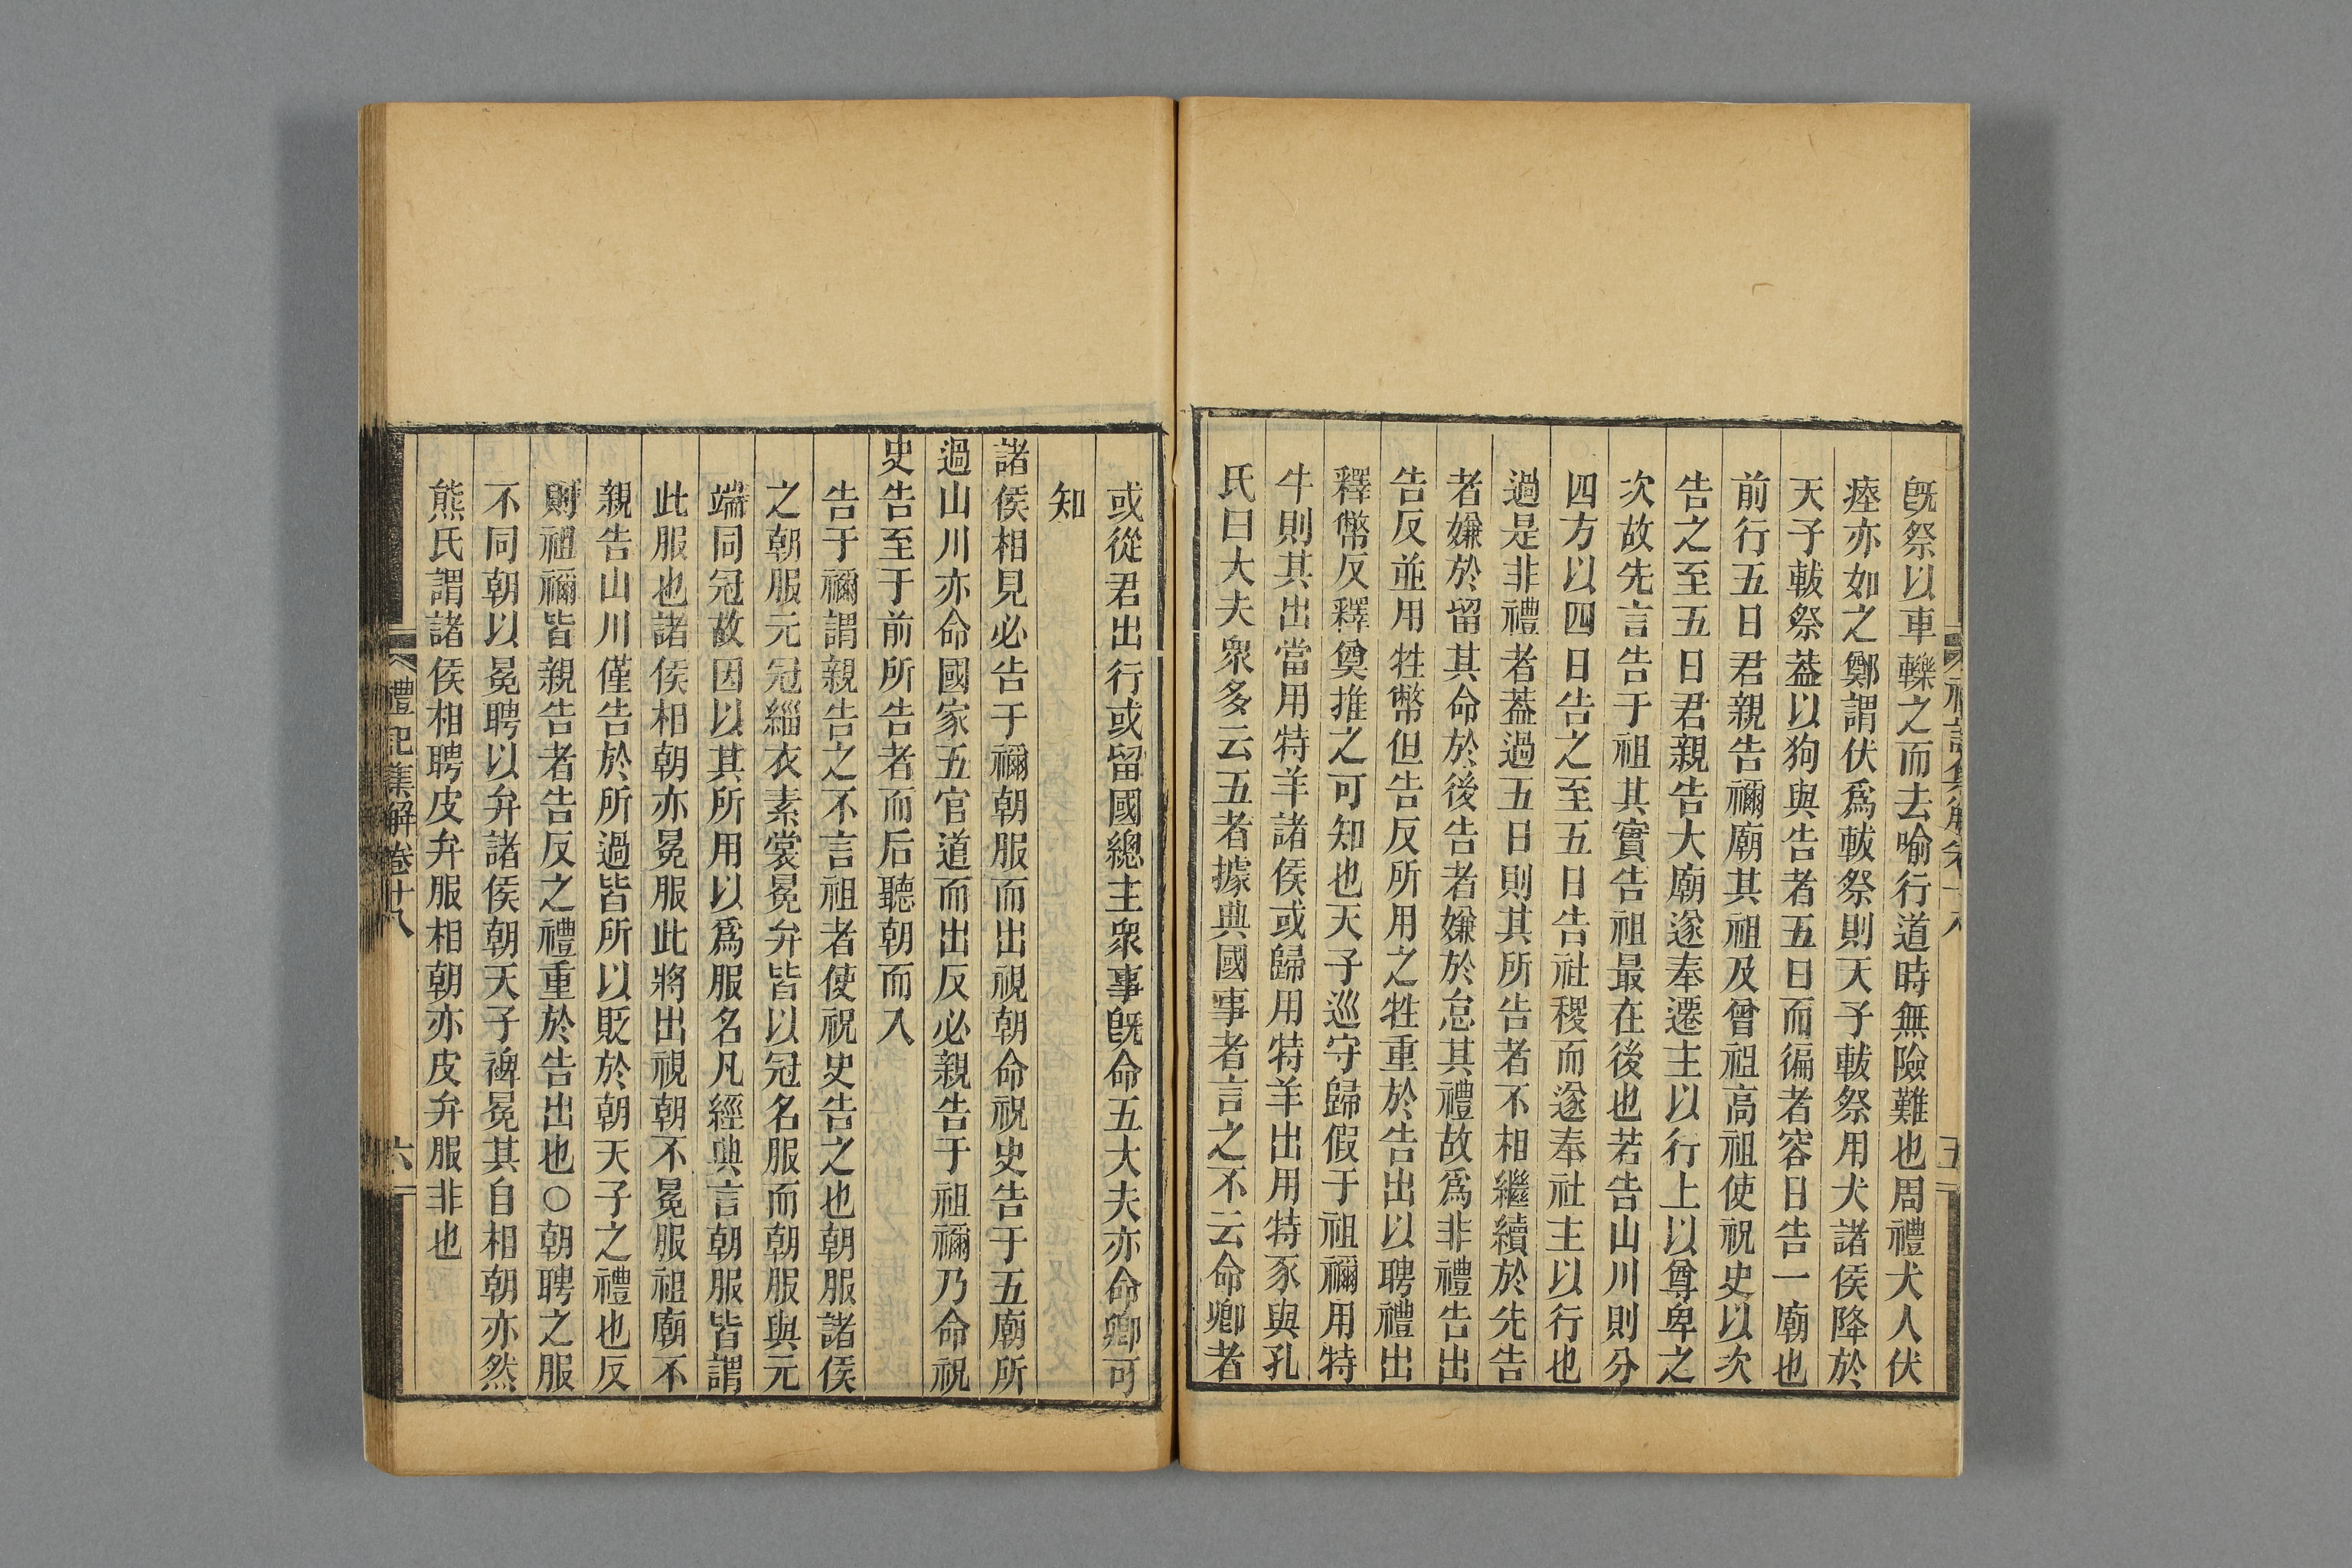 既祭以車轢之而去喻行道時無險難也周禮犬人伏
瘞亦如之鄭謂伏爲軷祭則天子軷祭用犬諸侯降於
天子軷祭葢以狗與告者五日而徧者容日告一廟也
前行五日君親告禰廟其祖及曾祖高祖使祝史以次
告之至五日君親告大廟遂奉遷主以行上以尊卑之
次故先言告于祖其實告祖最在後也若告山川則分
四方以四日告之至五日告社稷而遂奉社主以行也
過是非禮者葢過五日則其所告者不相繼續於先告
者嫌於留其命於後告者嫌於怠其禮故爲非禮告出
告反並用牲幣但告反所用之牲重於告出以聘禮出
釋幣反釋奠推之可知也天子巡守歸假于祖禰用特
牛則其出當用特羊諸侯或歸用特羊出用特豕與孔
氏曰大夫衆多云五者據典國事者言之不云命卿者
或從君出行或留國總主衆事既命五大夫亦命卿可
知
諸侯相見必告于禰朝服而出視朝命祝史告于五廟所
過山川亦命國家五官道而出反必親告于祖禰乃命祝
史告至于前所告者而后聽朝而入
告于禰謂親告之不言祖者使祝史告之也朝服諸侯
之朝服元冠緇衣素裳冕弁皆以冠名服而朝服與元
端同冠故因以其所用以爲服名凡經典言朝服皆謂
此服也諸侯相朝亦冕服此將出視朝不冕服祖廟不
親告山川僅告於所過皆所以貶於朝天子之禮也反
則祖禰皆親告者告反之禮重於告出也○朝聘之服
不同朝以冕聘以弁諸侯朝天子裨冕其自相朝亦然
熊氏謂諸侯相聘皮弁服相朝亦皮弁服非也
禮記集解卷廿八
六